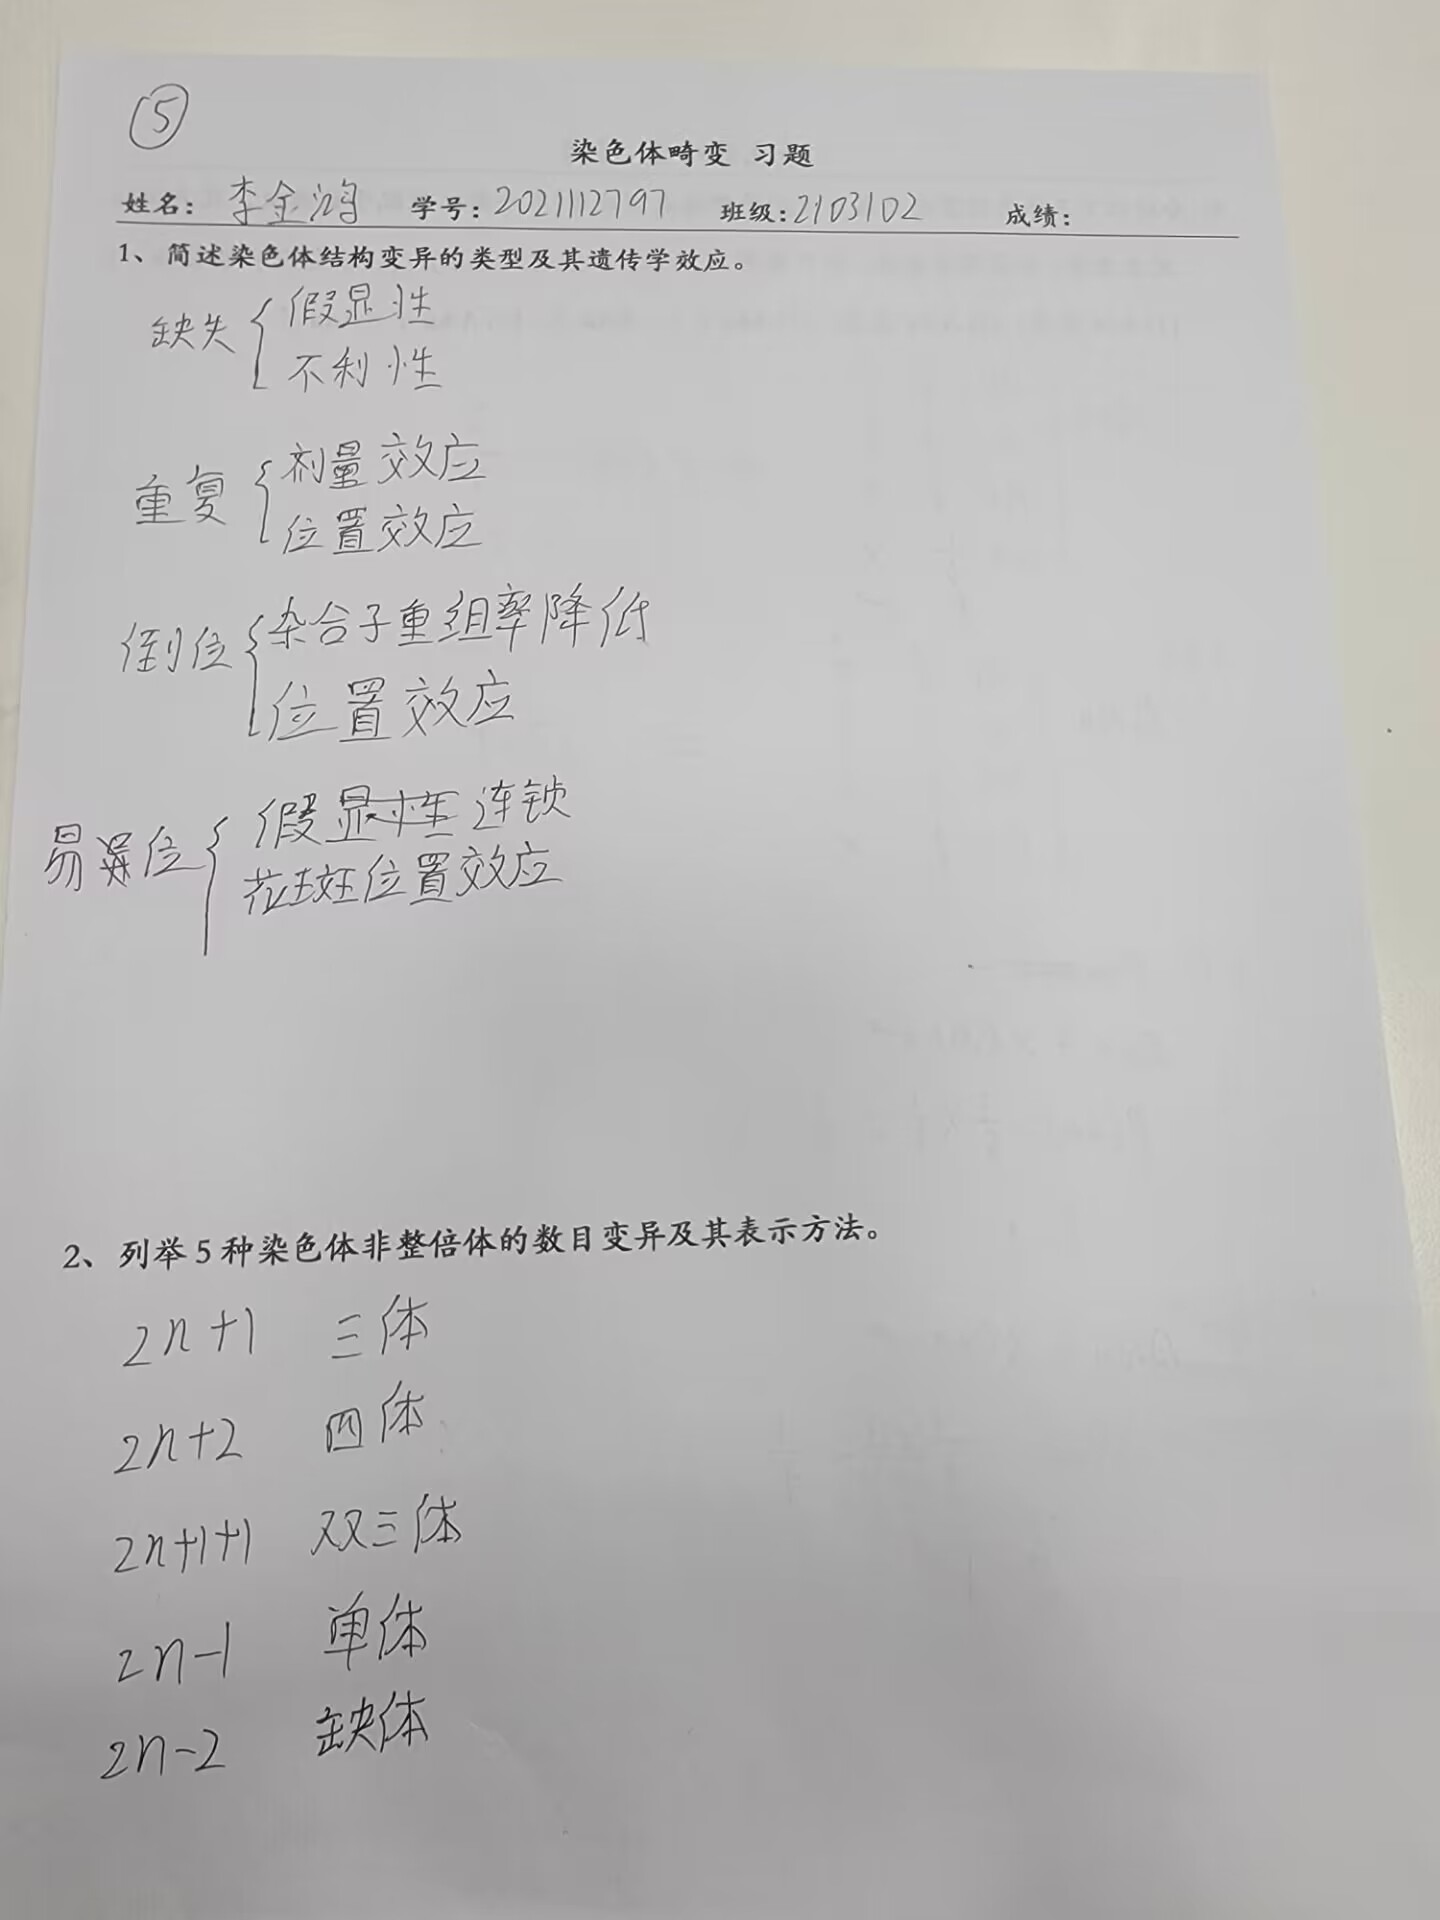 ⑤
染色体畸变 习题
姓名: 李金鸿 学号: 2021112797 班级: 2103102 成绩:
1、简述染色体结构变异的类型及其遗传学效应。
缺失 { 假显性
不利性
重复 { 剂量效应
位置效应
倒位 { 杂合子重组率降低
位置效应
易位 { 假连锁
花斑位置效应
2、列举5种染色体非整倍体的数目变异及其表示方法。
2n+1 三体
2n+2 四体
2n+1+1 双三体
2n-1 单体
2n-2 缺体